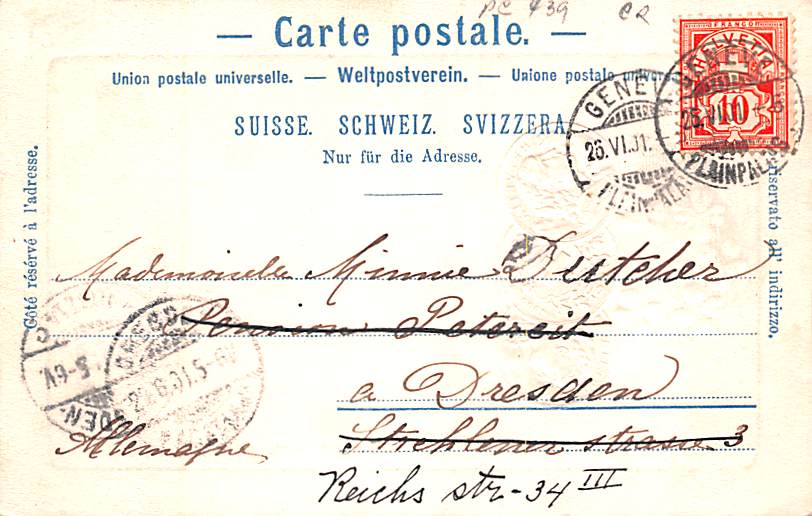 PC 439 CR
— Carte postale. —
Union postale universelle. — Weltpostverein. — Unione postale univers
SUISSE. SCHWEIZ. SVIZZERA
Nur für die Adresse.
Côté réservé à l'adresse.
riservato all' indirizzo.
FRANCO
HELVETIA
10
GENÈV
26.VI.01.
PLAINPALAIS
26.VI.01
PLAINPALAIS
Mademoiselle Minnie Dutcher
Pension Petereit
a Dresden
Strehlener strasse 3
Allemagne
Reichs str-34 III
DRESDEN
5-6V.